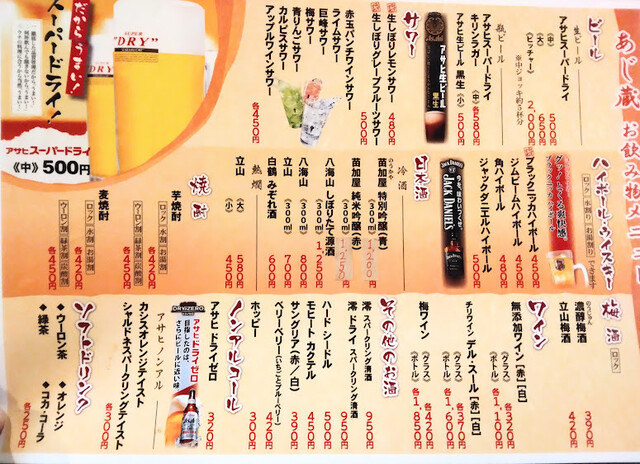 あじ蔵 お飲み物メニュー
ビール
生ビール
アサヒスーパードライ
(中) 500円
(大) 650円
(ピッチャー) 2,000円
※中ジョッキ約5杯分
瓶ビール
アサヒスーパードライ
キリンラガー (中) 各580円
アサヒ生ビール 黒生 (小) 500円
アサヒ生ビール
黒生
サワー
生しぼりレモンサワー 480円
生しぼりグレープフルーツサワー 500円
赤玉パンチワインサワー
ライムサワー
巨峰サワー
梅サワー
青りんごサワー
カルピスサワー
アップルワインサワー
各450円
だからうまい!
スーパードライ!
SUPER
"DRY"
アサヒスーパードライ
《中》500円
ハイボール・ウイスキー
ロック|水割|お湯割りできます
ブラックニッカハイボール 450円
ジムビームハイボール 450円
角ハイボール 480円
ジャックダニエルハイボール 500円
JACK DANIEL'S
日本酒
冷酒
苗加屋 特別吟醸(青) (300㎖) 1,200円
苗加屋 純米吟醸(赤) (300㎖) 1,250円
八海山 しぼりたて源酒
八海山 (300㎖) 1,250円
立山 (300㎖) 800円
白鶴 みぞれ酒 (300㎖) 700円
600円
熱燗
立山 (大) 580円
(小) 450円
焼酎
芋焼酎
ロック|水割|お湯割 各420円
ウーロン割|緑茶割|炭酸割 各450円
麦焼酎
ロック|水割|お湯割 各420円
ウーロン割|緑茶割|炭酸割 各450円
梅酒
ロック
濃醇梅酒 390円
立山梅酒 420円
ワイン
無添加ワイン【赤】【白】
(グラス) 各320円
(ボトル) 各1,100円
チリワイン デル・スール【赤】【白】
(グラス) 各370円
(ボトル) 各1,600円
梅ワイン
(グラス) 各420円
(ボトル) 各1,850円
その他のお酒
澪 スパークリング清酒 950円
澪 ドライ スパークリング清酒 950円
ハード シードル 500円
モヒート カクテル 450円
サングリア(赤/白) 各420円
ベリーベリー(いちごとブルーベリー) 390円
ホッピー 300円
ノンアルコール
アサヒ ドライゼロ 320円
DRY ZERO
アサヒドライゼロ
目指したのは、
さらにビールに近い味
アサヒ ノンアル
カシスオレンジテイスト
シャルドネスパークリングテイスト
各300円
ソフトドリンク
◆ウーロン茶 ◆オレンジ
◆緑茶 ◆コカ・コーラ
各250円